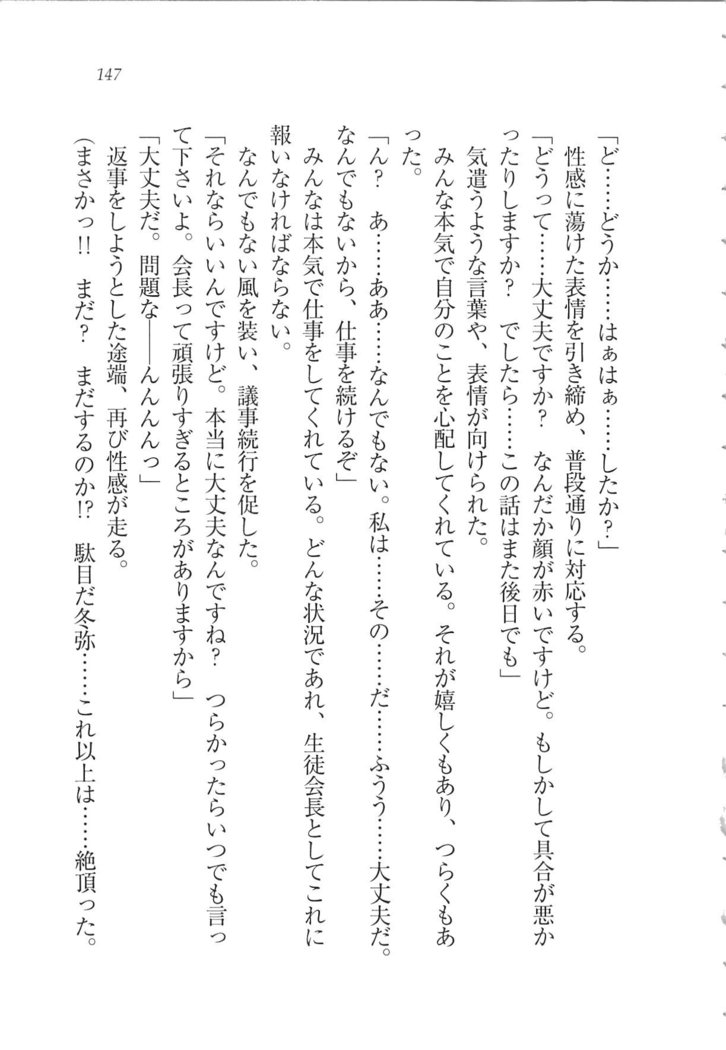 147
「ど……どうか……はぁはぁ……したか？」
性感に蕩けた表情を引き締め、普段通りに対応する。
「どうって……大丈夫ですか？　なんだか顔が赤いですけど。もしかして具合が悪か
ったりしますか？　でしたら……この話はまた後日でも」
気遣うような言葉や、表情が向けられた。
みんな本気で自分のことを心配してくれている。それが嬉しくもあり、つらくもあ
った。
「ん？　あ……ああ……なんでもない。私は……その……だ……ふうう……大丈夫だ。
なんでもないから、仕事を続けるぞ」
みんなは本気で仕事をしてくれている。どんな状況であれ、生徒会長としてこれに
報いなければならない。
なんでもない風を装い、議事続行を促した。
「それならいいんですけど。本当に大丈夫なんですね？　つらかったらいつでも言っ
て下さいよ。会長って頑張りすぎるところがありますから」
「大丈夫だ。問題な――んんんんっ」
返事をしようとした途端、再び性感が走る。
（まさかっ!!　まだ？　まだするのか!?　駄目だ冬弥……これ以上は……絶頂った。